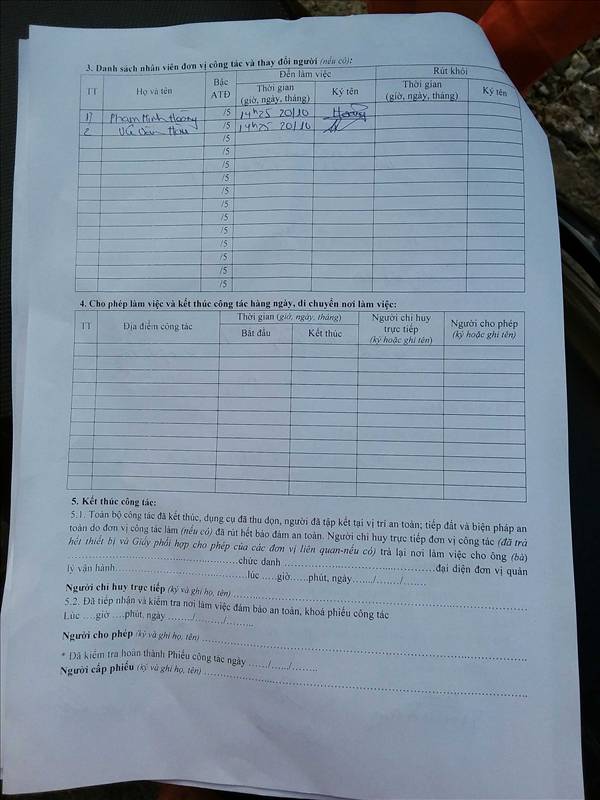 3. Danh sách nhân viên đơn vị công tác và thay đổi người (nếu có):
TT Họ và tên Bậc ATĐ Đến làm việc Rút khỏi
Thời gian (giờ, ngày, tháng) Ký tên Thời gian (giờ, ngày, tháng) Ký tên
1) Phạm Minh Hoàng /5 14h25 20/10 Hoàng
2 Vũ Văn /5 14h25 20/10
/5
/5
/5
/5
/5
/5
/5
/5
/5
/5
/5
/5
4. Cho phép làm việc và kết thúc công tác hàng ngày, di chuyển nơi làm việc:
TT Địa điểm công tác Thời gian (giờ, ngày, tháng) Người chỉ huy trực tiếp (ký hoặc ghi tên) Người cho phép (ký hoặc ghi tên)
Bắt đầu Kết thúc
5. Kết thúc công tác:
5.1. Toàn bộ công tác đã kết thúc, dụng cụ đã thu dọn, người đã tập kết tại vị trí an toàn; tiếp đất và biện pháp an
toàn do đơn vị công tác làm (nếu có) đã rút hết bảo đảm an toàn. Người chỉ huy trực tiếp đơn vị công tác (đã trả
hết thiết bị và Giấy phối hợp cho phép của các đơn vị liên quan-nếu có) trả lại nơi làm việc cho ông (bà)
..............................chức danh ..............................đại diện đơn vị quản
lý vận hành..............................lúc .....giờ.....phút, ngày....../......./.......
Người chỉ huy trực tiếp (ký và ghi họ, tên) ..............................
5.2. Đã tiếp nhận và kiểm tra nơi làm việc đảm bảo an toàn, khoá phiếu công tác
Lúc ....giờ ....phút, ngày ......./......./........
Người cho phép (ký và ghi họ, tên) ..............................
* Đã kiểm tra hoàn thành Phiếu công tác ngày ....../....../........
Người cấp phiếu (ký và ghi họ, tên) ..............................